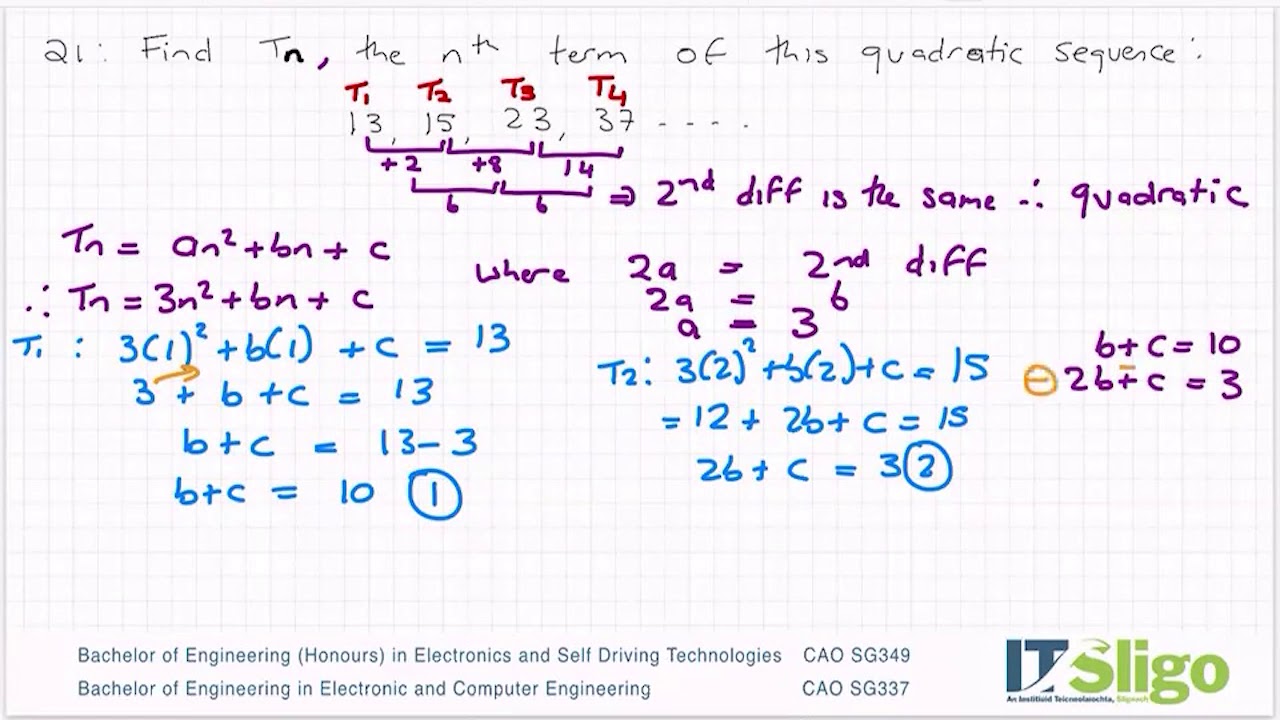 Q1: Find Tn, the nth term of this quadratic sequence:
T1 T2 T3 T4
13, 15, 23, 37 - - - -
+2 +8 14
6 6 ⇒ 2nd diff is the same ∴ quadratic
Tn = an² + bn + c
where 2a = 2nd diff
∴ Tn = 3n² + bn + c
2a = 6
a = 3
T1 : 3(1)² + b(1) + c = 13
3 + b + c = 13
b + c = 13 - 3
b + c = 10 ①
T2: 3(2)² + b(2) + c = 15
= 12 + 2b + c = 15
2b + c = 3 ②
b + c = 10
⊖ 2b + c = 3
-
Bachelor of Engineering (Honours) in Electronics and Self Driving Technologies CAO SG349
Bachelor of Engineering in Electronic and Computer Engineering CAO SG337
IT Sligo
An Institiúid Teicneolaíochta, Sligeach